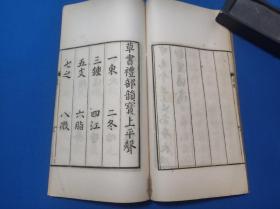 草書禮部韻寶上平聲
一東 二冬
三鍾 四江
五支 六脂
七之 八微